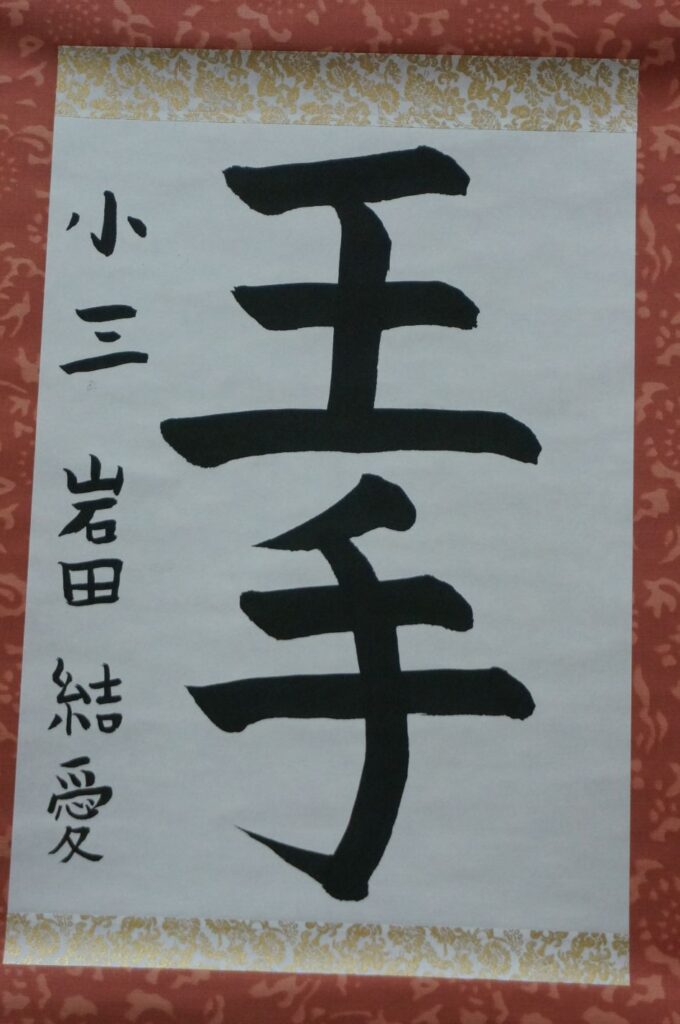 王手
小三 岩田 結愛